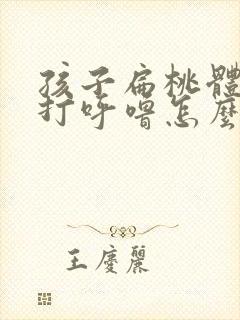 孩子扁桃體
打呼嚕怎麼
王慶麗